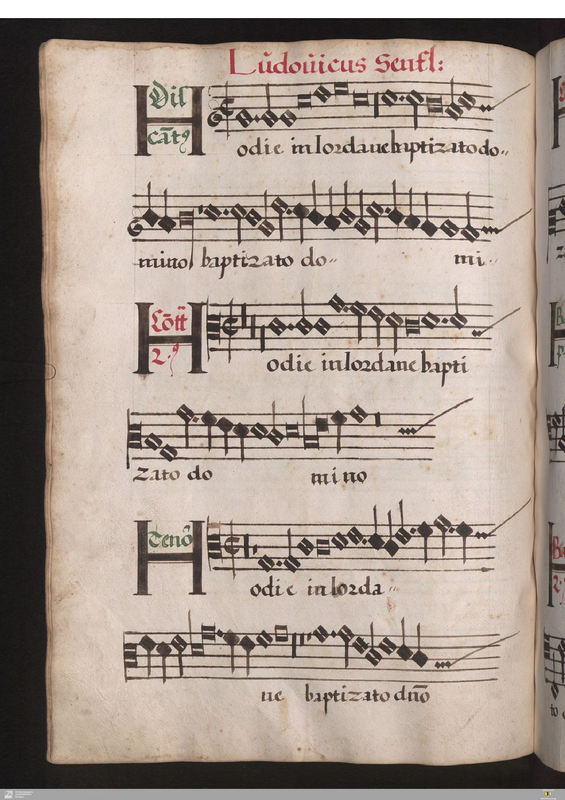 Ludouicus Senfl:
Dis
cāt9
H
odie in Iordane baptizato do
mino baptizato do mi
Cōtr̄
2.9
H
odie in Iordane bapti
zato do mino
Teno
H
odie in Iorda
ne baptizato dn̄o